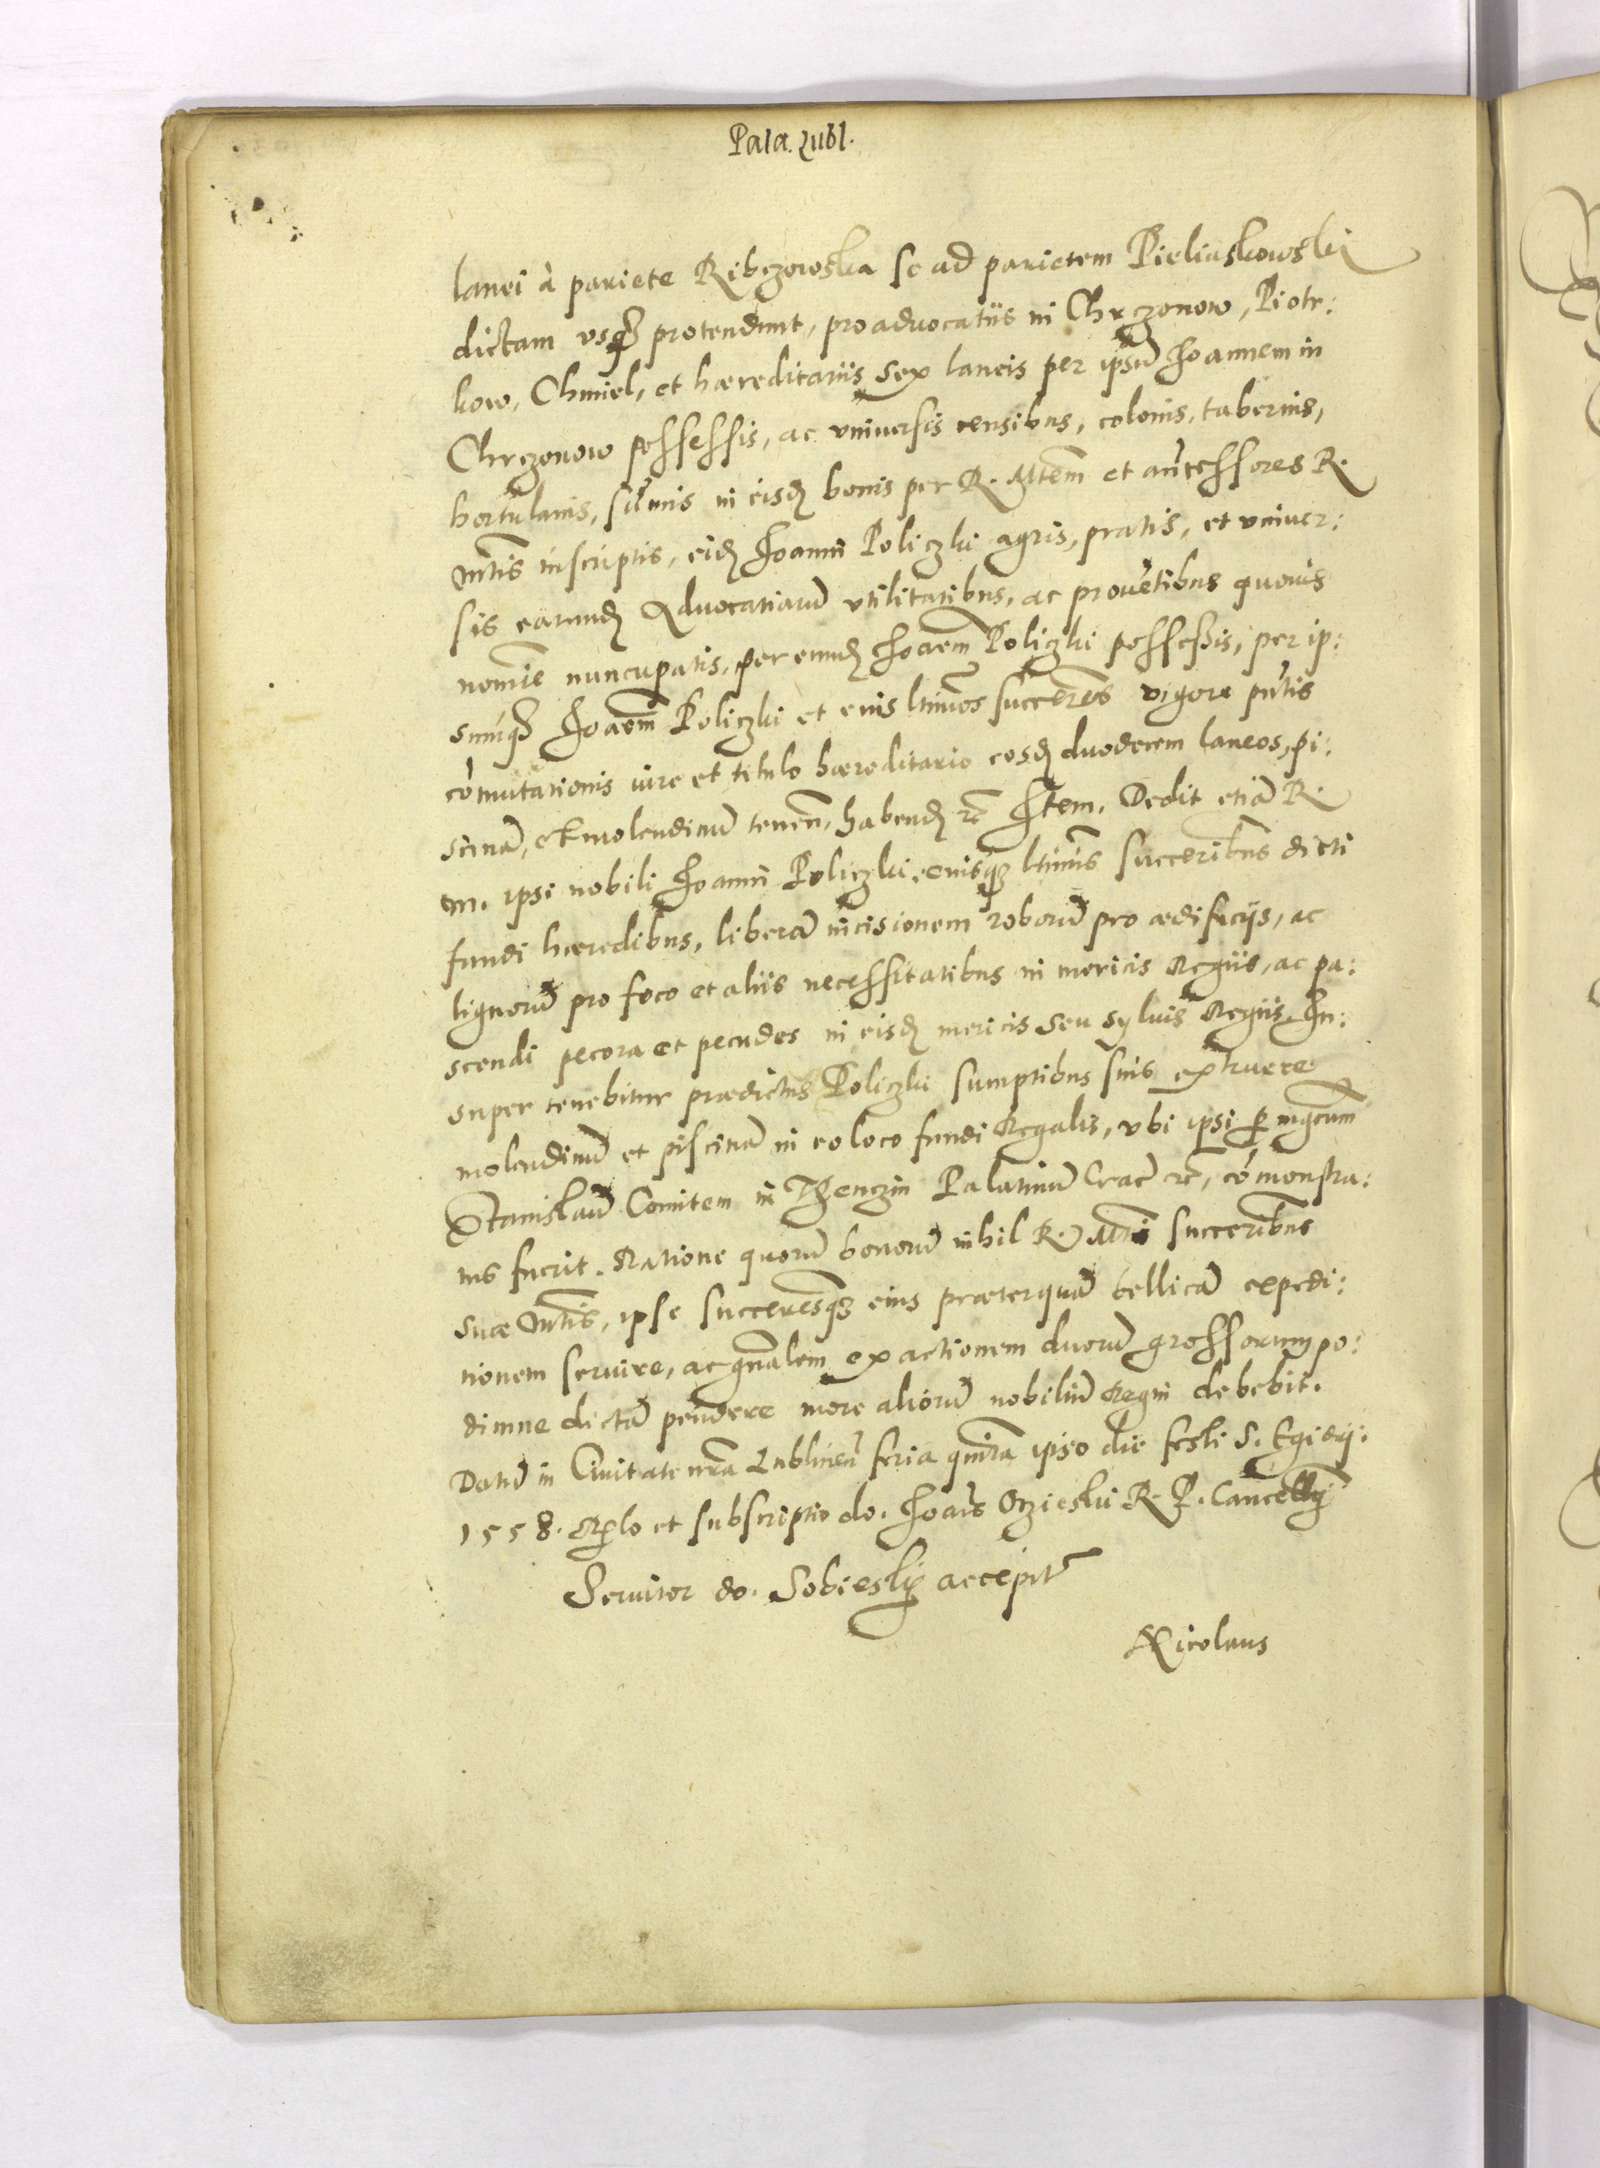 Pala. Lubl.
lanei à pariete Ribczowska se ad parietem Pieliaskowski
dictam usq3 protendunt, pro advocatiis in Chrczonow, Piotr:
kow, Chmiel, et hæreditariis sex laneis per ipsū Joannem in
Chrczonow possessis, ac universis censibus, colonis, tabernis,
hortulanis, sūmis in eisd bonis per R. Mtem et antecessores R.
Mtis inscriptis, eid Joanni Policzki agris, pratis, et univer:
sis earund Advocatiarū utilitatibus, ac proventibus quovis
nomīe nuncupatis, per eund Joaem Policzki possessis, per ip:
sumq3 Joaem Policzki et eius ltimos succeres vigore pntis
cōmutationis iure et titulo hæreditario eosd duodecem laneos, pi:
scinā, et molendinū tenen, habend rc Item. Dedit etiā R.
M. ipsi nobili Joanni Policzki, eiusq3 ltimis succeribus dicti
fundi hæredibus, liberā incisionem roborū pro ædificijs, ac
lignorū pro foco et aliis necessitatibus in mericis Regiis, ac pa:
scendi pecora et pecudes in eisd mericis seu sylvis Regiis. In:
super tenebitur prædictus Policzki sumptibus suis extruere
molendinū et piscinā in eo loco fundi Regalis, ubi ipsi p mgcum
Stanislaū Comitem in Thenczin Palatinū Crac rc, cōmonstra:
tus fuerit. Ratione quorū bonorū nihil R. Mti succeribus
suæ Mtis, ipse succeresq3 eius præterquā bellicā expedi:
tionem servire, ac gnalem exactionem duorū grossorum po:
dimne dictā pendere more aliorū nobiliū Regni debebit.
Datū in Civitate nra Lublinen feria quinta ipso die festi S. Egidij.
1558. Rlo et subscriptio do. Joais Oczieski R. P. Cancellrij
Servitor do. Sobiesky accepit
Nicolaus